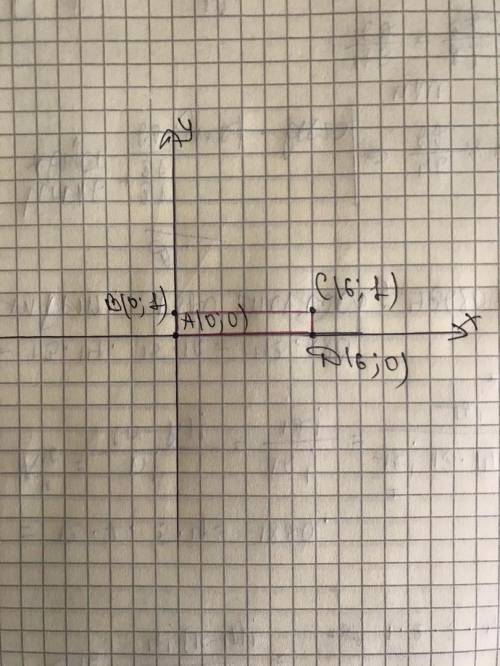 y
B(0; 1)
A(0; 0)
C(6; 1)
x
D(6; 0)